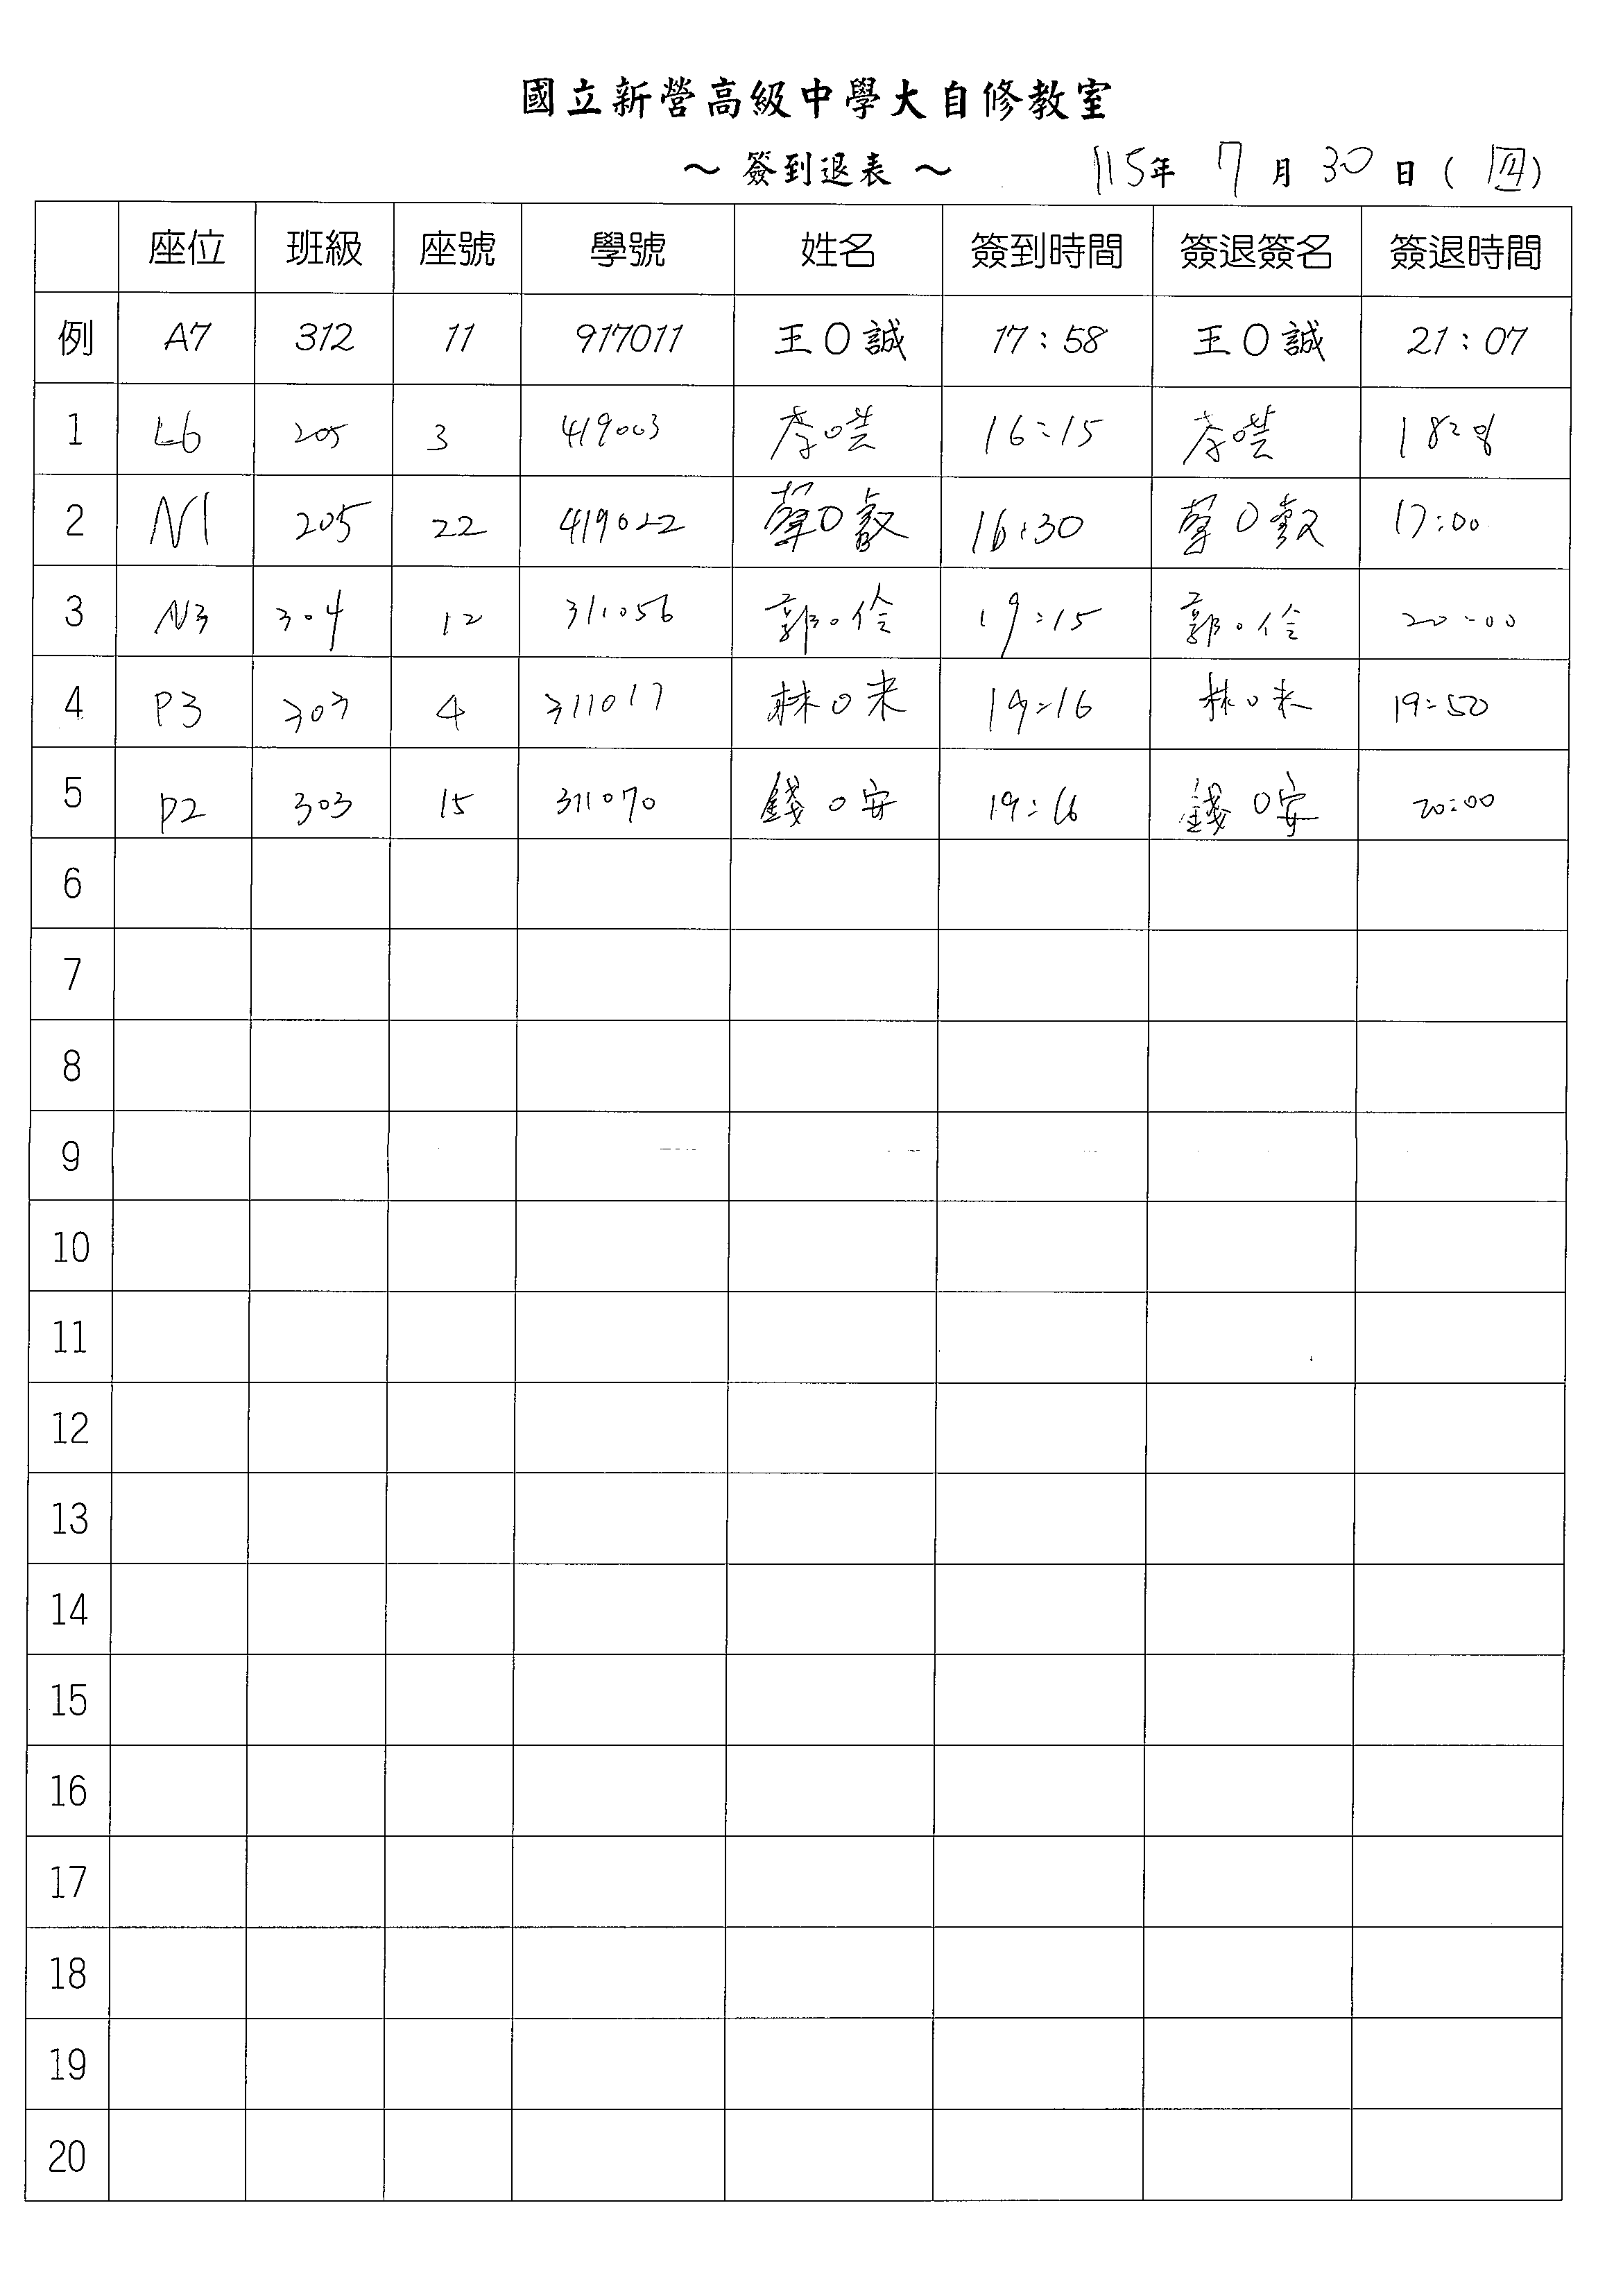 國立新營高級中學大自修教室
～ 簽到退表 ～ 115年 7月 30日(四)
座位 班級 座號 學號 姓名 簽到時間 簽退簽名 簽退時間
例 A7 312 11 917011 王O誠 17:58 王O誠 21:07
1 L6 205 3 419003 16:15
2 N1 205 22 419022 16:30 17:00
3 N3 304 12 311056 郭O伶 19:15 郭O伶 20:00
4 P3 303 4 311017 林O未 19:16 林O未 19:50
5 P2 303 15 311070 錢O安 19:16 錢O安 20:00
6
7
8
9
10
11
12
13
14
15
16
17
18
19
20